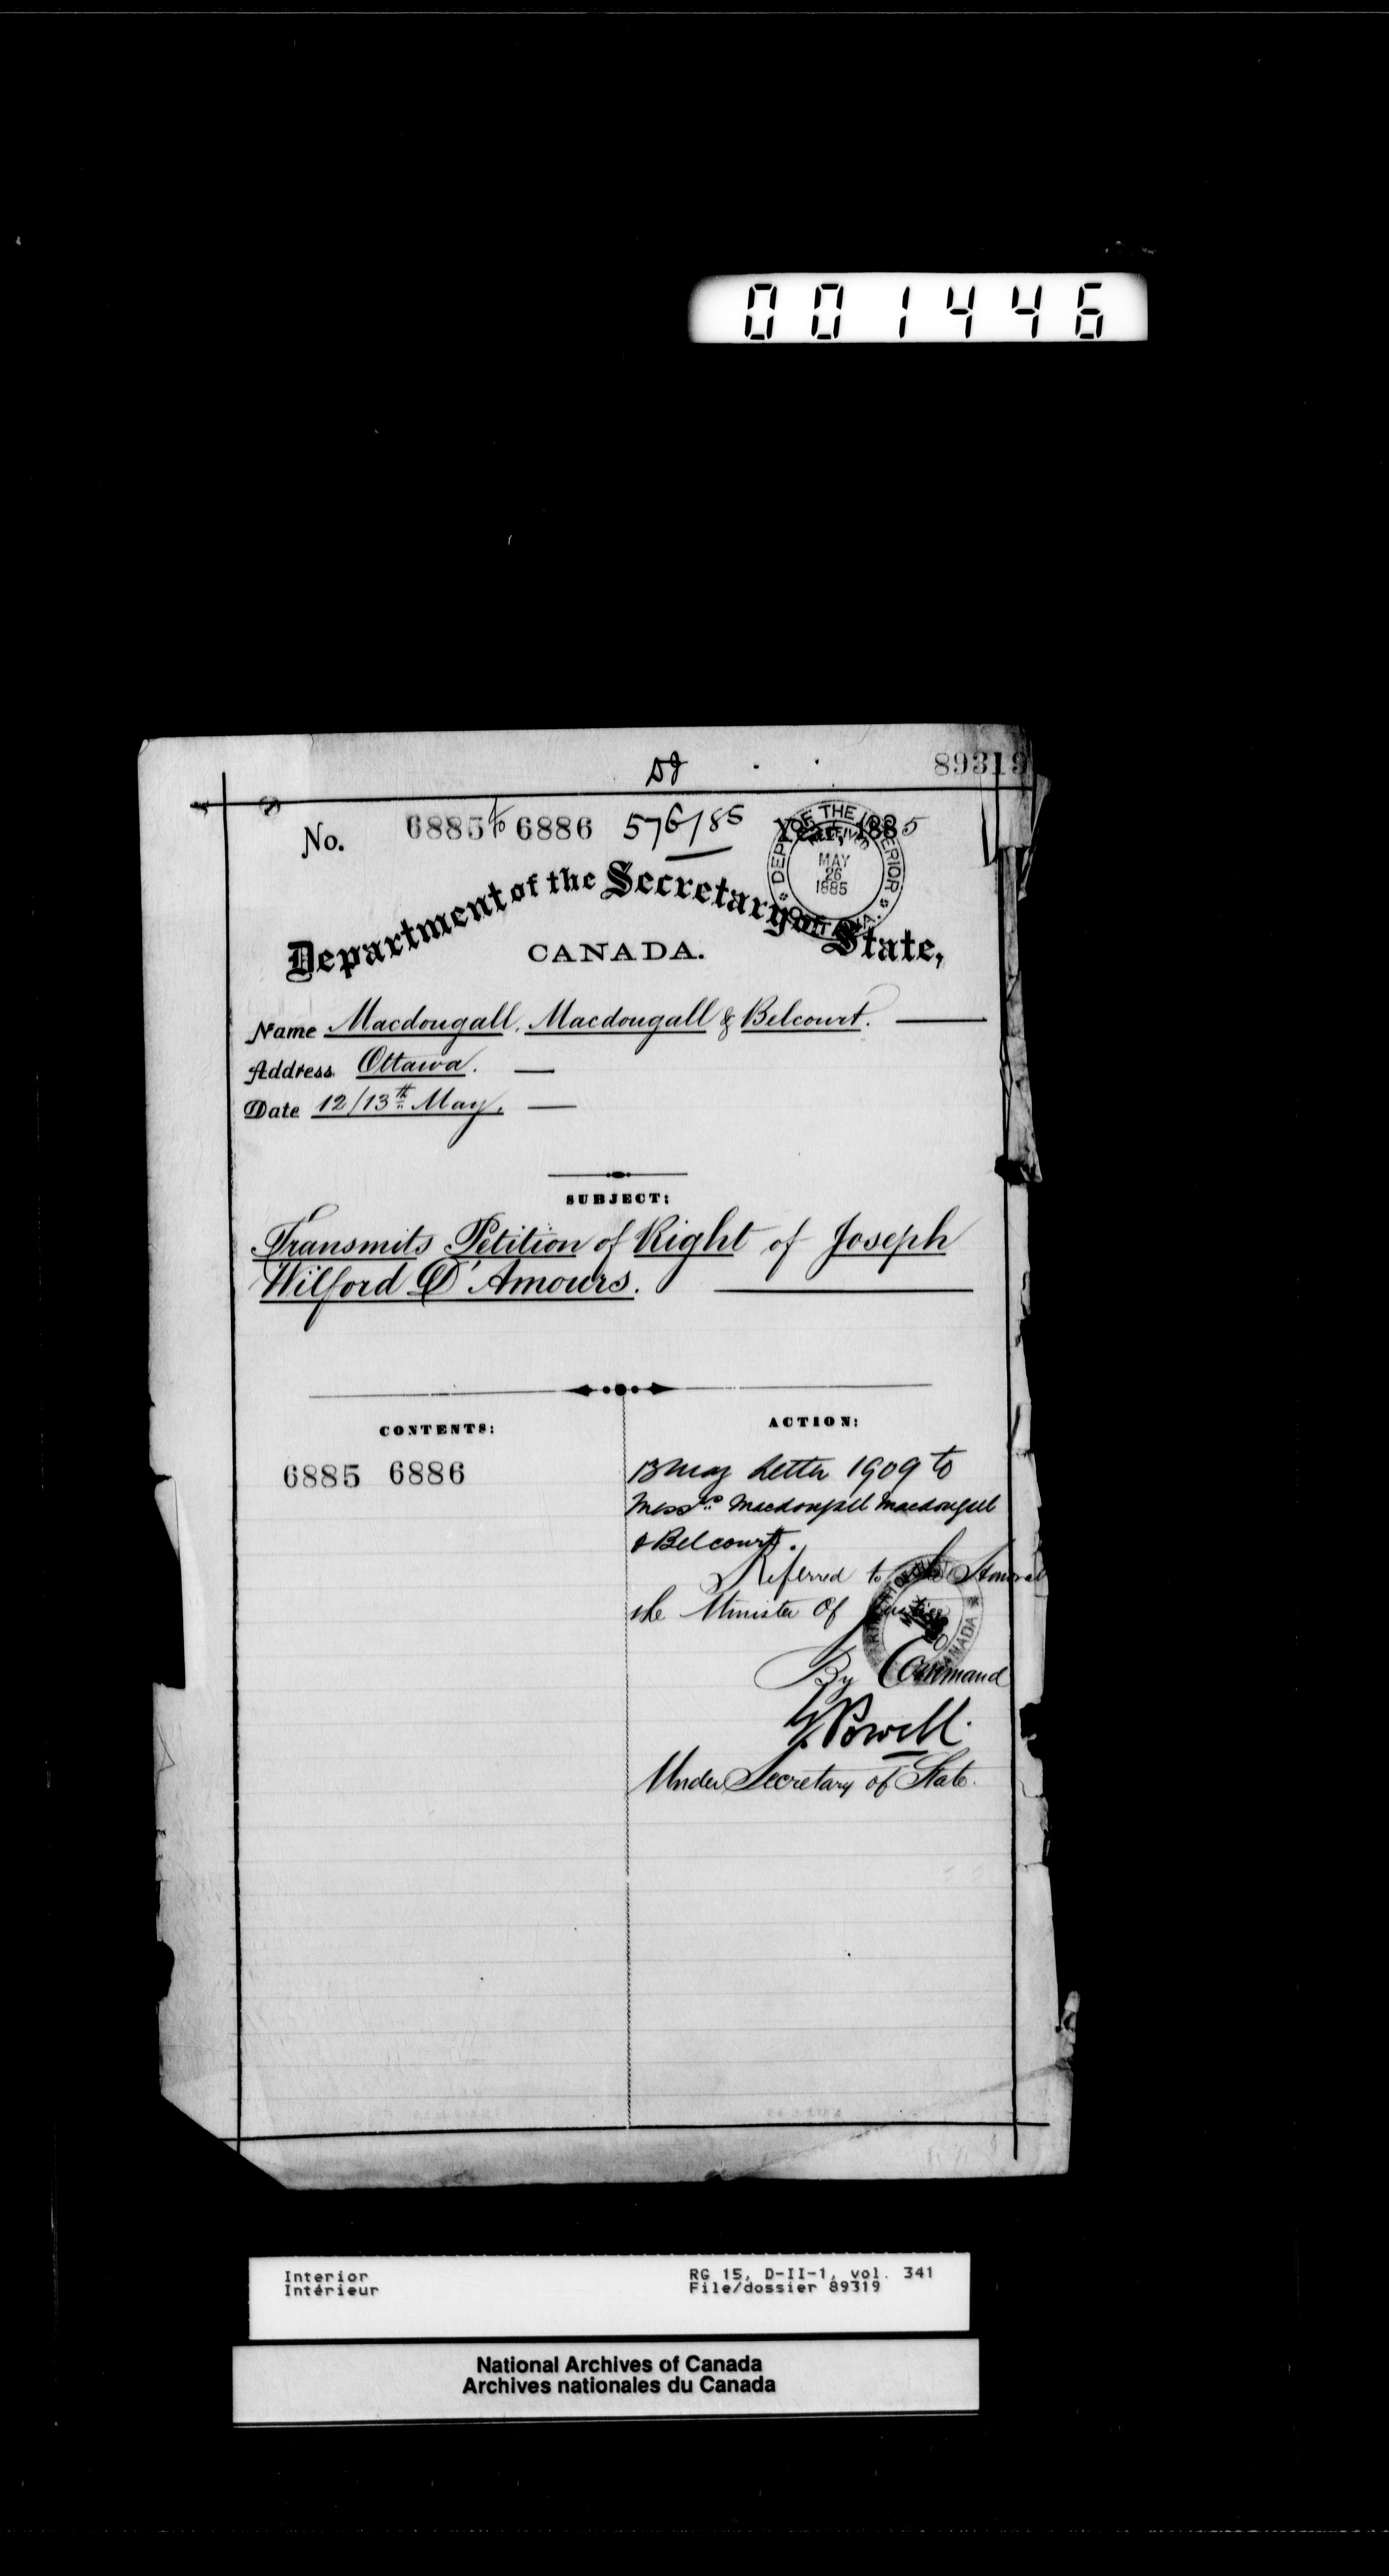 001446
89319
No. 6885 to 6886 576/85 1885
DEPT. OF THE INTERIOR
RECEIVED
MAY
26
1885
OTTAWA.
Department of the Secretary of State,
CANADA.
Name Macdougall, Macdougall & Belcourt.
Address Ottawa.
Date 12/13th May.
SUBJECT:
Transmits Petition of Right of Joseph
Wilford D'Amours.
CONTENTS:
6885 6886
ACTION:
13 May Letter 1909 to
Messrs Macdougall Macdougall
& Belcourt.
Referred to the Honoral
the Minister of Justice
CANADA
By Command
G. Powell.
Under Secretary of State.
Interior
Intérieur
RG 15, D-II-1, vol. 341
File/dossier 89319
National Archives of Canada
Archives nationales du Canada